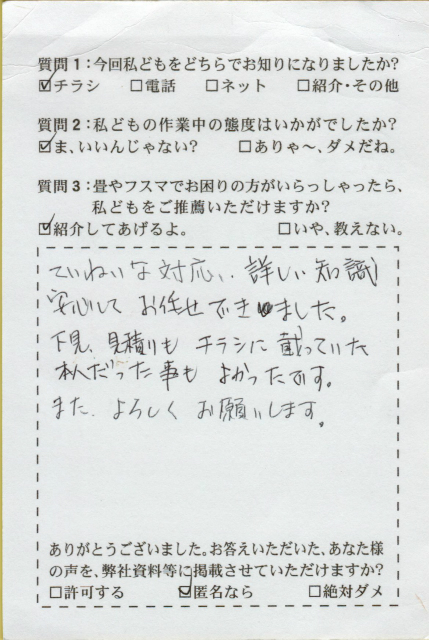 質問1:今回私どもをどちらでお知りになりましたか?
☑チラシ □電話 □ネット □紹介・その他
質問2:私どもの作業中の態度はいかがでしたか?
☑ま、いいんじゃない? □ありゃ~、ダメだね。
質問3:畳やフスマでお困りの方がいらっしゃったら、
私どもをご推薦いただけますか?
☑紹介してあげるよ。 □いや、教えない。
ていねいな対応、詳しい知識
安心して お任せできました。
下見、見積りも チラシに載っていた
本人だった事も よかったです。
また、よろしく お願いします。
ありがとうございました。お答えいただいた、あなた様
の声を、弊社資料等に掲載させていただけますか?
□許可する ☑匿名なら □絶対ダメ